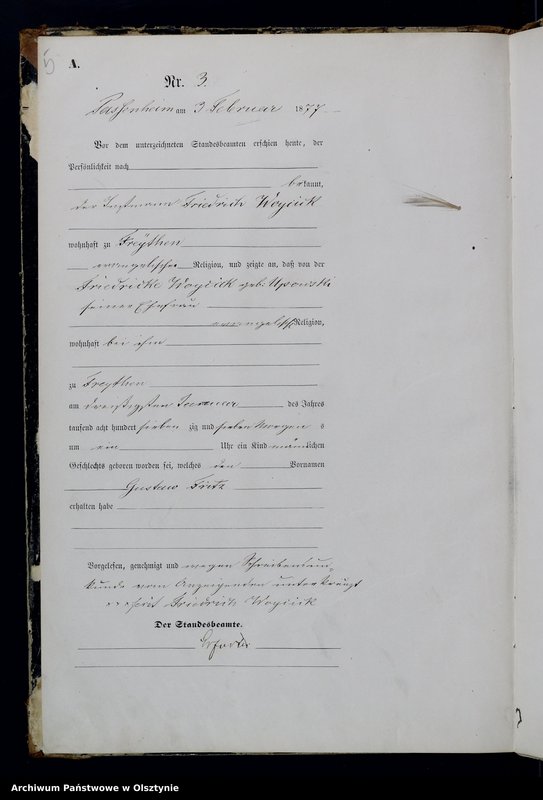 5
A.
Nr. 3.
Passenheim am 3 Februar 1877
Vor dem unterzeichneten Standesbeamten erschien heute, der
Persönlichkeit nach
bekannt,
der Instmann Friedrich Woycick
wohnhaft zu Freythen
evangelischer Religion, und zeigte an, daß von der
Friedricke Woycick geb. Uposuski
seiner Ehefrau
evangelisch Religion,
wohnhaft bei ihm
zu Freythen
am dreißigsten Januar des Jahres
tausend acht hundert sieben zig und sieben Morgen s
um ein Uhr ein Kind männlichen
Geschlechts geboren worden sei, welches den Vornamen
Gustav Fritz
erhalten habe
Vorgelesen, genehmigt und wegen Schreibenun-
kunde vom Anzeigenden unterkreuzt
+ + + Friedrich Woycick
Der Standesbeamte.
Archiwum Państwowe w Olsztynie